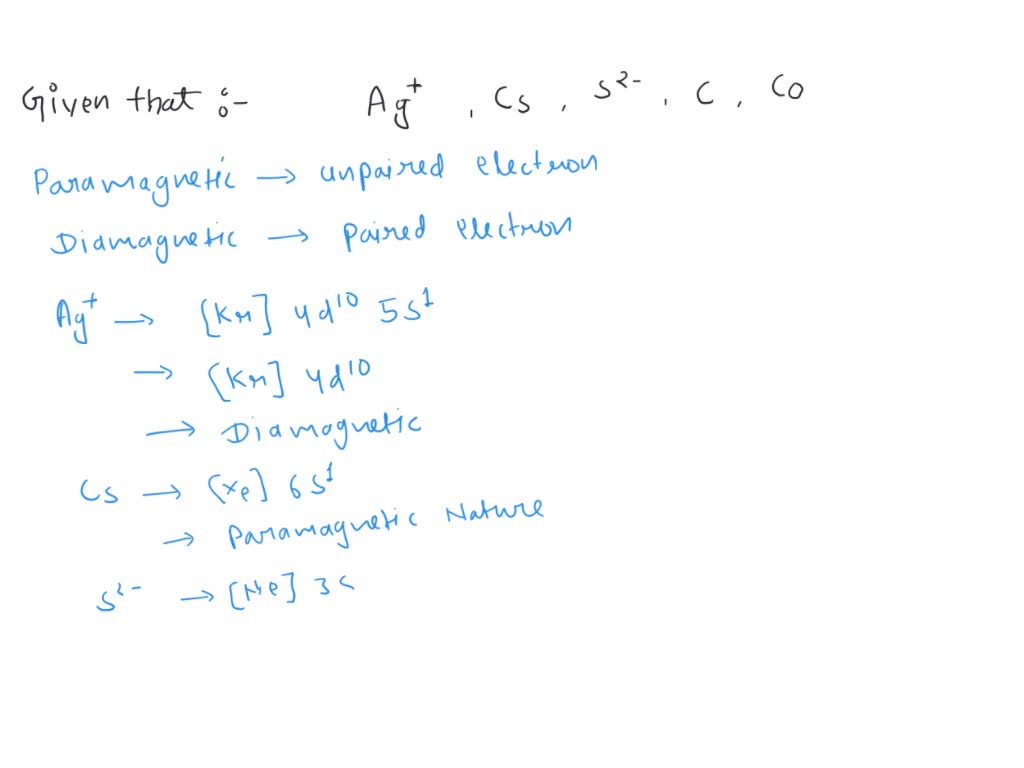 Given that :- Ag⁺ , Cs , S²⁻ , C , Co
Paramagnetic → unpaired electron
Diamagnetic → Paired electron
Ag⁺ → [Kr] 4d¹⁰ 5s¹
→ [Kr] 4d¹⁰
→ Diamagnetic
Cs → [Xe] 6s¹
→ Paramagnetic Nature
S²⁻ → [Ne] 3s